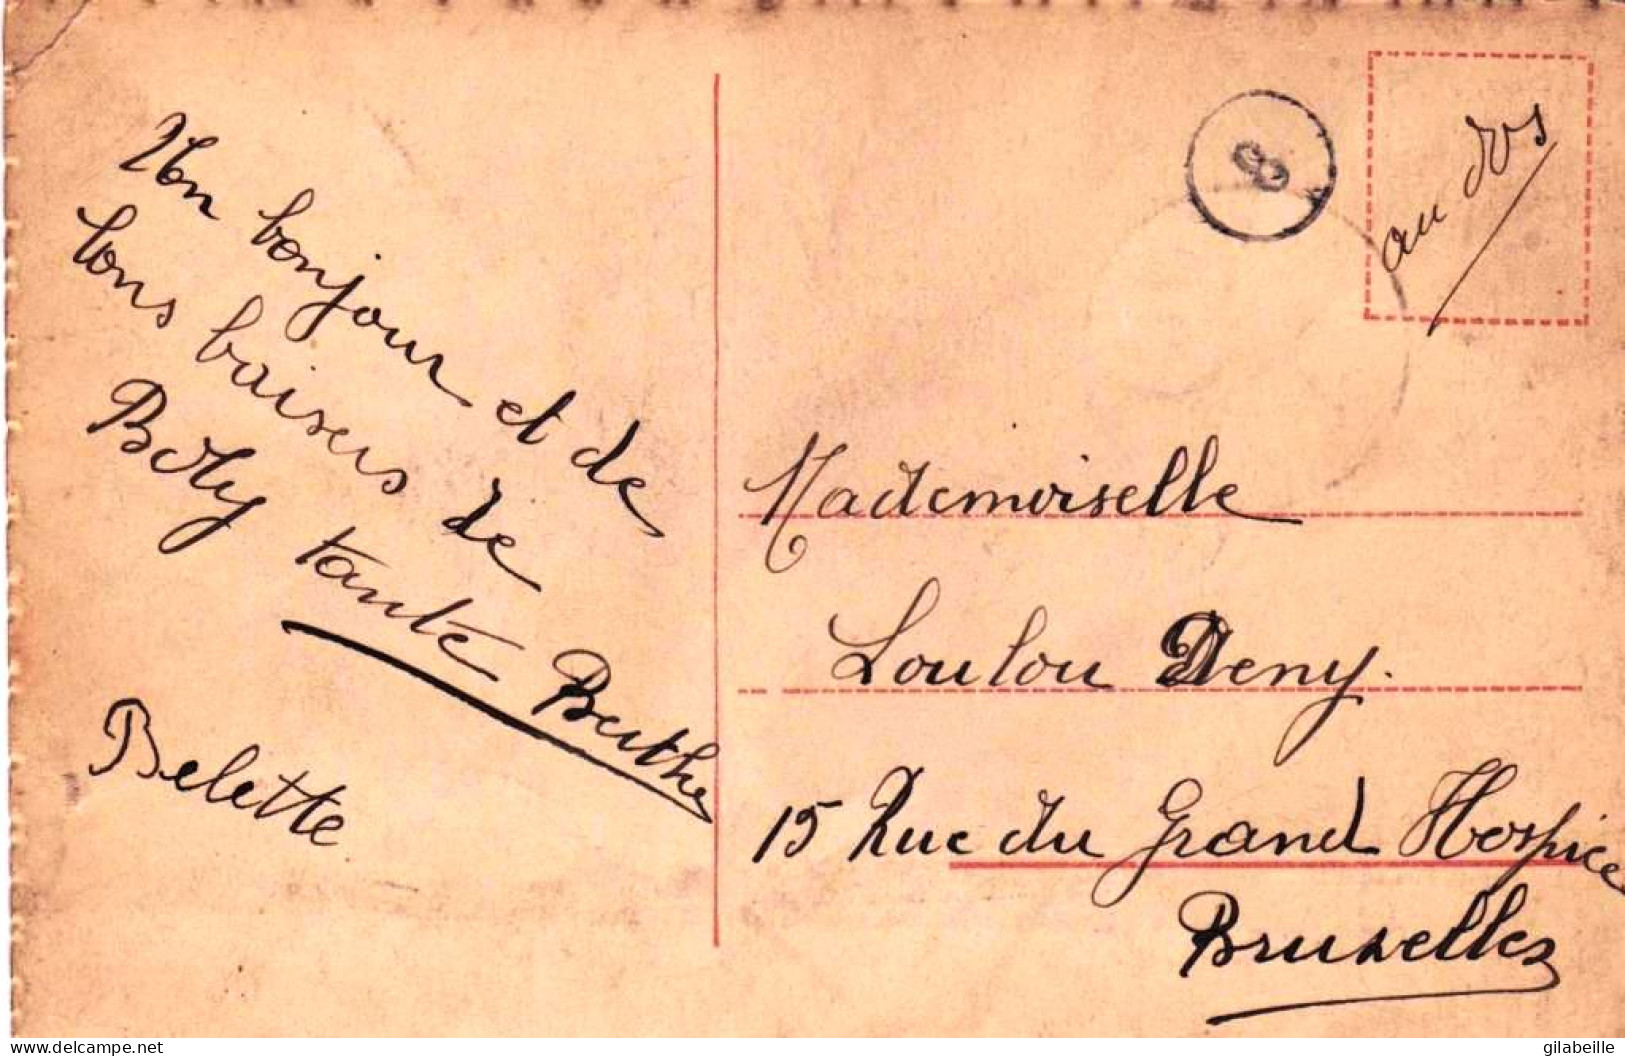 Un bonjour et de
bons baisers de
Boby tante Berthe
Belette
8
au dos
Mademoiselle
Loulou Deny.
15 Rue du Grand Hospice
Bruxelles
delcampe.net
gilabeille